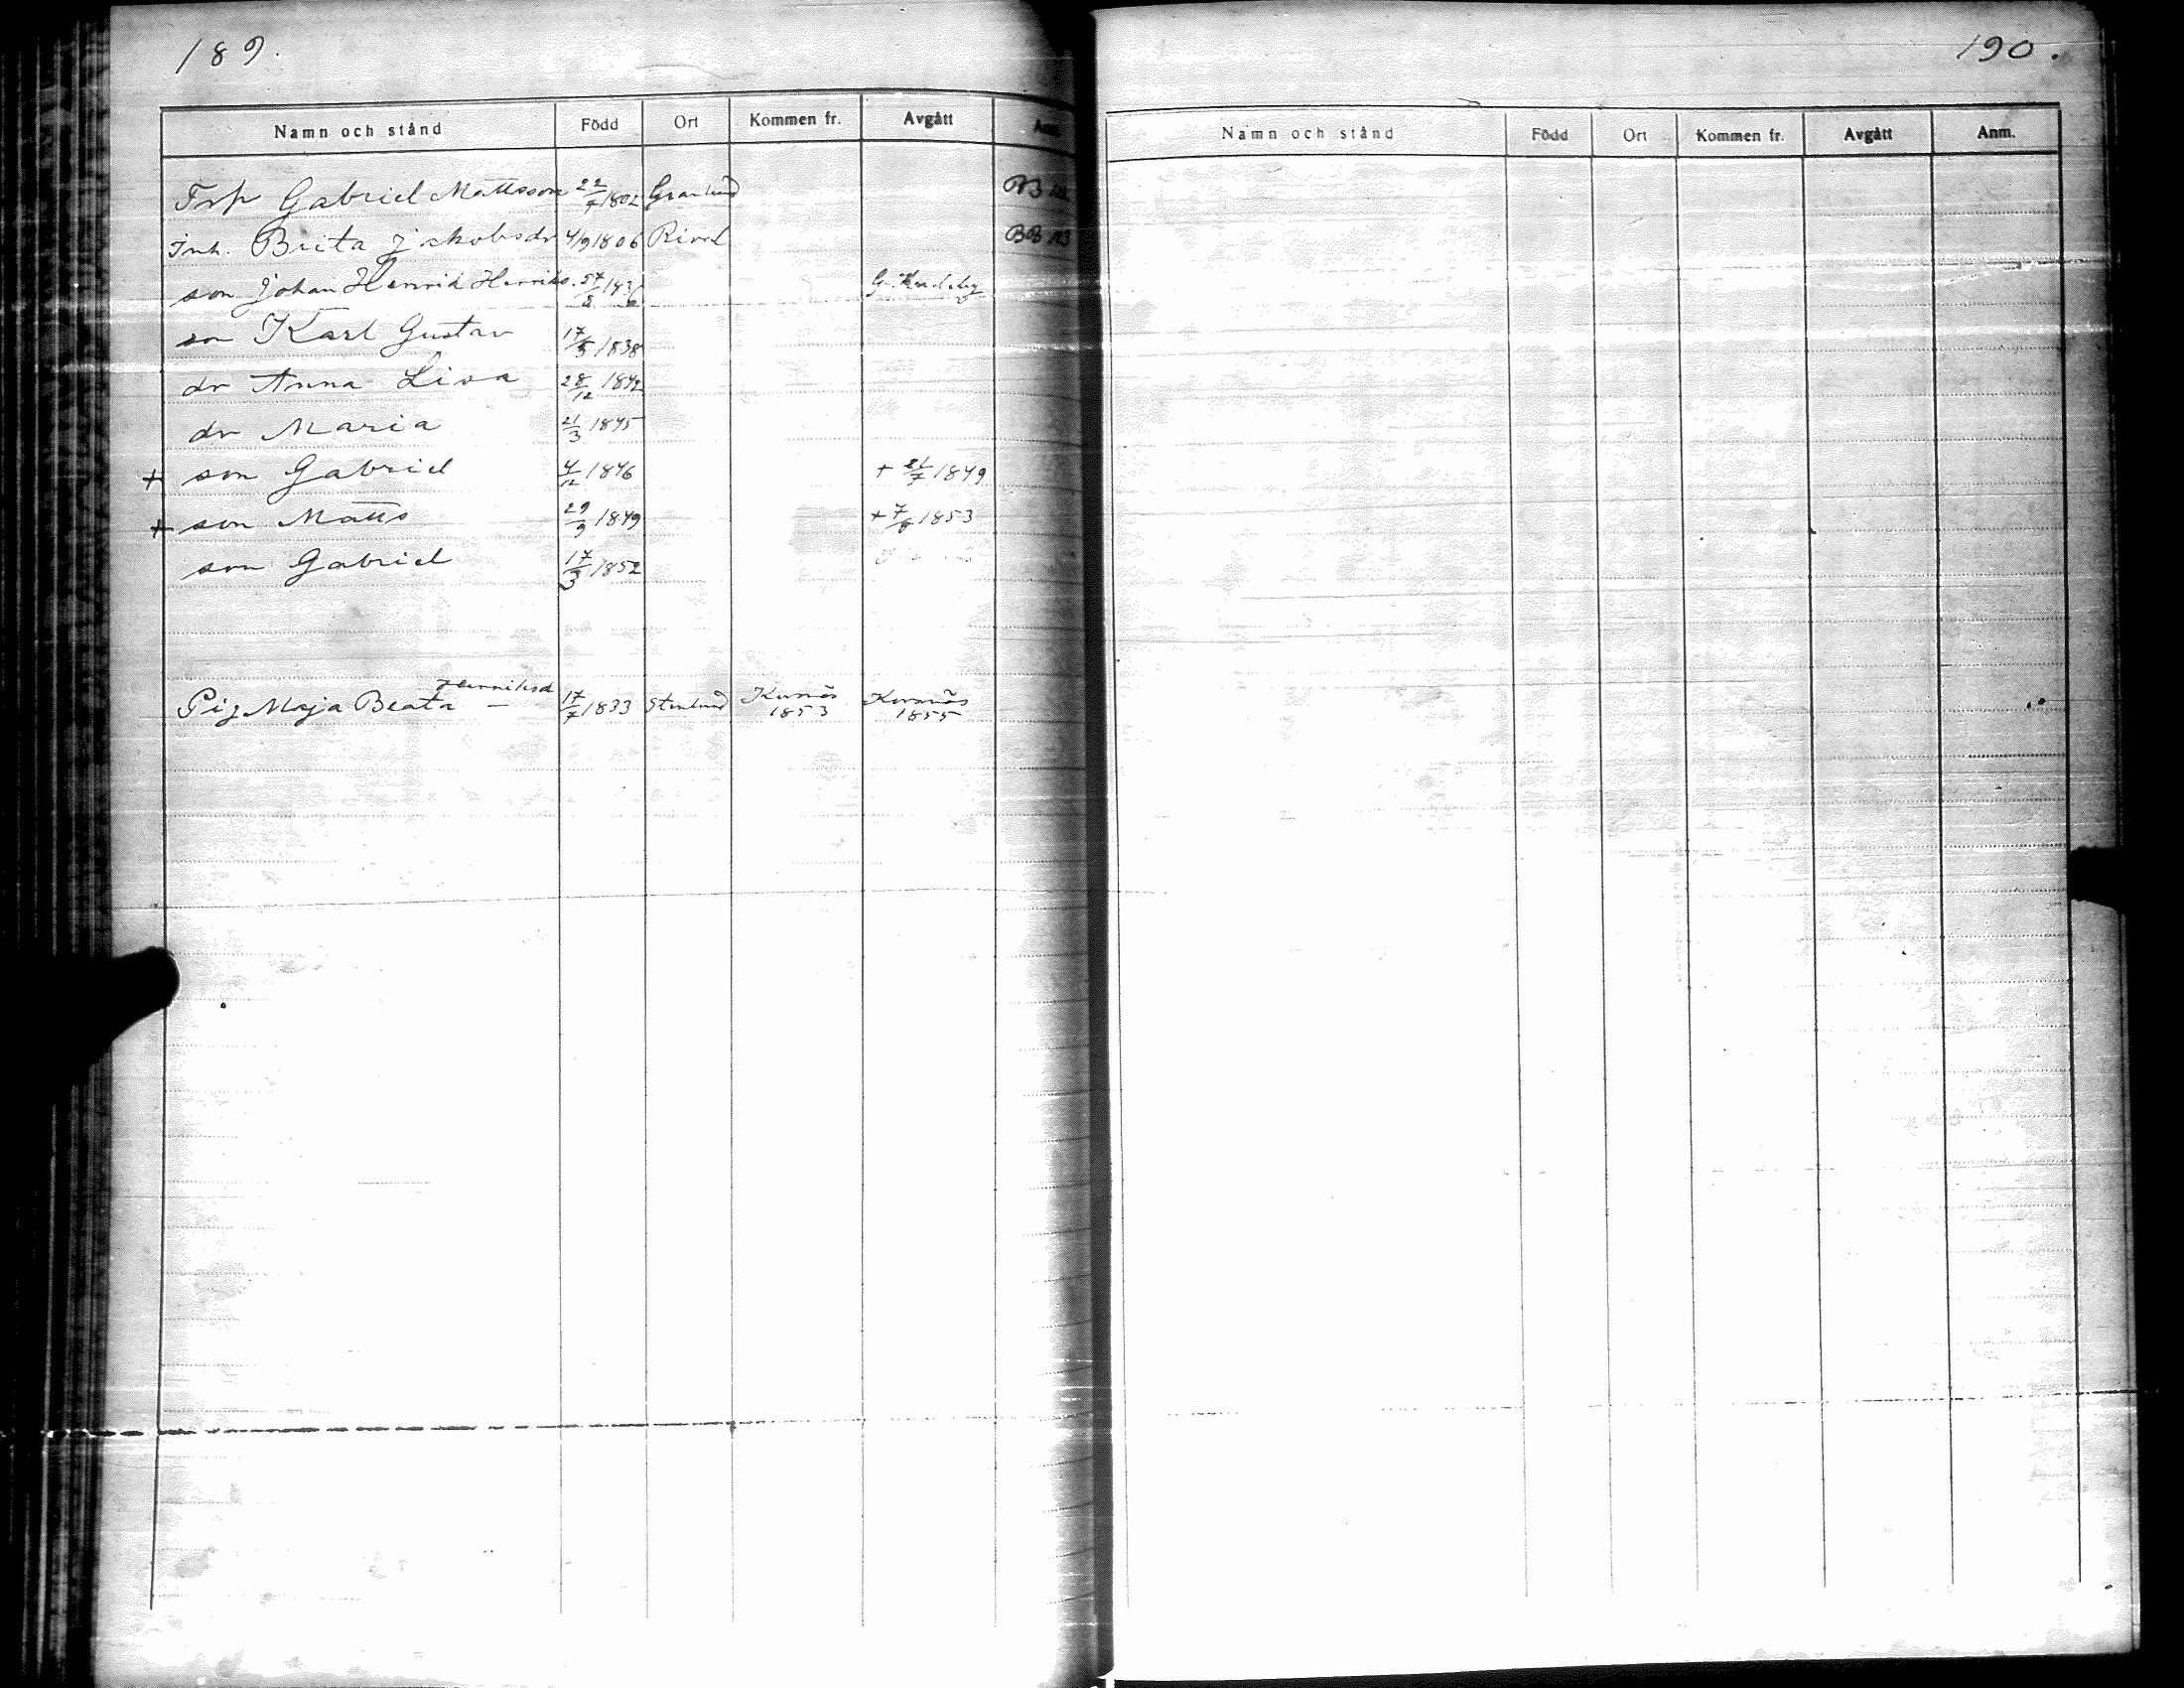 189.
Namn och stånd Född Ort Kommen fr. Avgått Anm.
Trp Gabriel Mattsson 22/7 1802 Granlund
Inh. Brita Jakobsdr 4/9 1806 Rivel BB
son Johan Henrik Henriks. 183
son Karl Gustav 17/5 1838
dr Anna Lisa 28/12 1842
dr Maria 21/3 1845
+ son Gabriel 4/12 1846 + 21/7 1849
+ son Matts 29/9 1849 + 7/8 1853
son Gabriel 17/3 1852
Henriksd
Pig Maja Beata — 17/7 1833 Stenlund Kurnäs 1853 Kurnäs 1855
190.
Namn och stånd Född Ort Kommen fr. Avgått Anm.